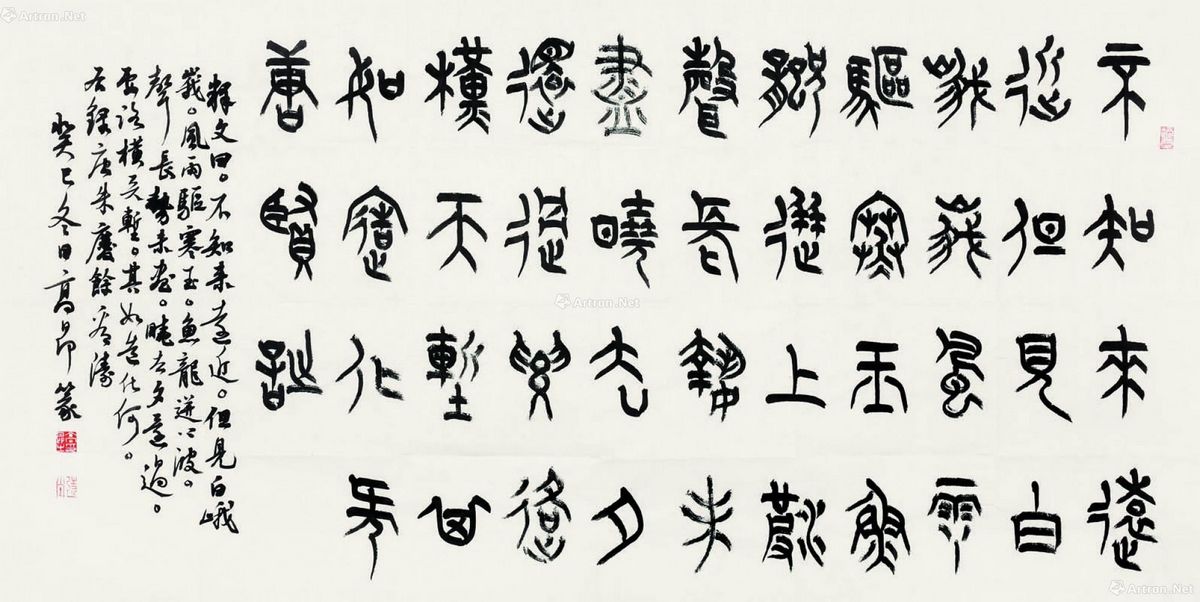 不知來遠
近但見白
峨峨風雨
驅寒玉魚
龍迸上波
聲長勢未
盡曉去夕
還過要路
橫天塹其
如造化何
唐賢詩
釋文曰。不知來遠近。但見白峨
峨。風雨驅寒玉。魚龍迸上波。
聲長勢未盡。曉去夕還過。
要路橫天塹。其如造化何。
右錄唐朱慶餘看濤
癸巳冬日高昂篆
Artron.Net
Artron.Net
Artron.Net